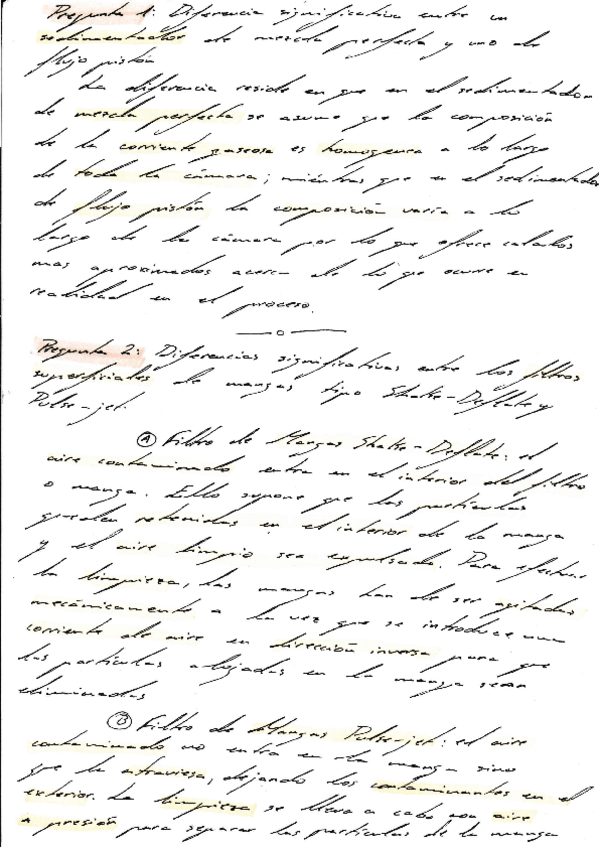 Pregunta 1: Diferencia significativa entre un
sedimentador de mezcla perfecta y uno de
flujo pistón
La diferencia reside en que en el sedimentador
de mezcla perfecta se asume que la composición
de la corriente gaseosa es homogenea a lo largo
de toda la cámara; mientras que en el sedimentador
de flujo pistón la composición varía a lo
largo de la cámara por lo que ofrece calculos
mas aproximados acerca de lo que ocurre en
realidad en el proceso.
Pregunta 2: Diferencias significativas entre los filtros
superficiales de mangas tipo Shake-Deflate y
Pulse-jet.
A Filtro de Mangas Shake-Deflate: el
aire contaminado entra en el interior del filtro
o manga. Ello supone que las partículas
queden retenidas en el interior de la manga
y el aire limpio sea expulsado. Para efectuar
la limpieza, las mangas han de ser agitadas
mecánicamente a la vez que se introduce una
corriente de aire en dirección inversa para que
las partículas alojadas en la manga sean
eliminadas
B Filtro de Mangas Pulse-jet: el aire
contaminado no entra en la manga sino
que la atraviesa, dejando los contaminantes en el
exterior. La limpieza se lleva a cabo con aire
a presión para separar las partículas de la manga